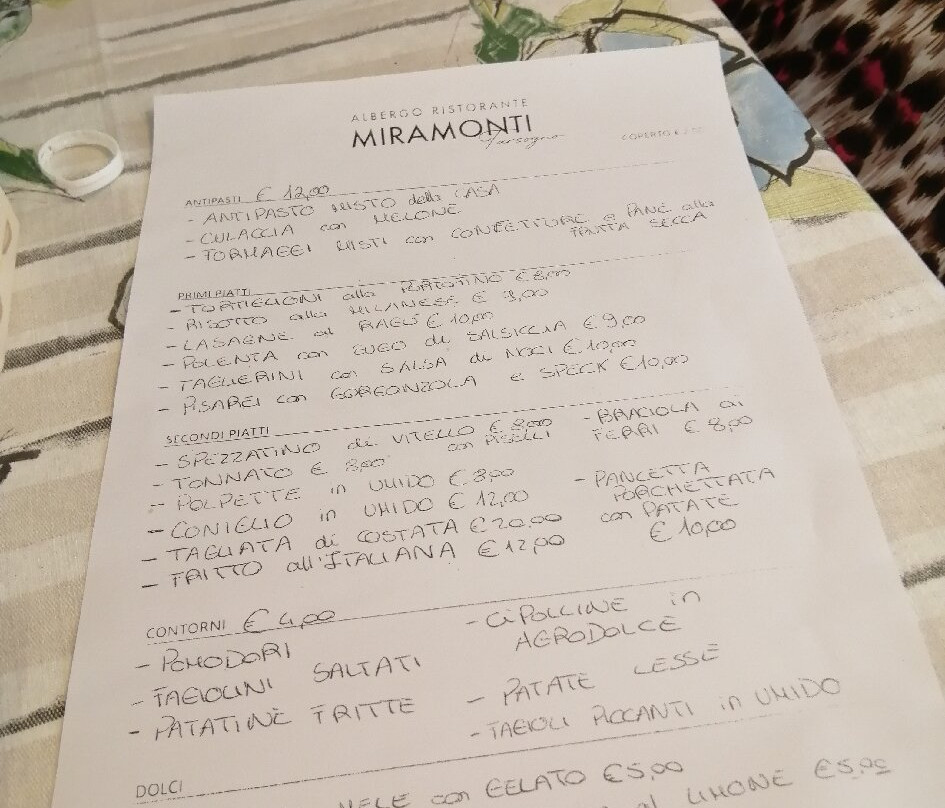 ALBERGO RISTORANTE
MIRAMONTI
Farsogno
COPERTO €
ANTIPASTI € 12,00
- ANTIPASTO MISTO della CASA
- CULACCIA con MELONE
- FORMAGGI MISTI con CONFETTURE e PANE alla
FRUTTA SECCA
PRIMI PIATTI
- TORTIGLIONI alla € 8,00
- RISOTTO alla MILANESE € 9,00
- LASAGNE al RAGÙ € 10,00
- POLENTA con SUGO di SALSICCIA € 9,00
- TAGLIERINI con SALSA di NOCI € 10,00
- PISAREI con GORGONZOLA e SPECK € 10,00
SECONDI PIATTI
- SPEZZATINO di VITELLO € 8,00
con PISELLI
- TONNATO € 8,00
- POLPETTE in UMIDO € 8,00
- CONIGLIO in UMIDO € 12,00
- TAGLIATA di COSTATA € 20,00
- FRITTO all'ITALIANA € 12,00
- BRACIOLA ai
FERRI € 8,00
- PANCETTA
PORCHETTATA
con PATATE
€ 10,00
CONTORNI € 4,00
- POMODORI
- FAGIOLINI SALTATI
- PATATINE FRITTE
- CIPOLLINE in
AGRODOLCE
- PATATE LESSE
- FAGIOLI PICCANTI in UMIDO
DOLCI
MELE con GELATO € 5,00
al LIMONE € 5,00